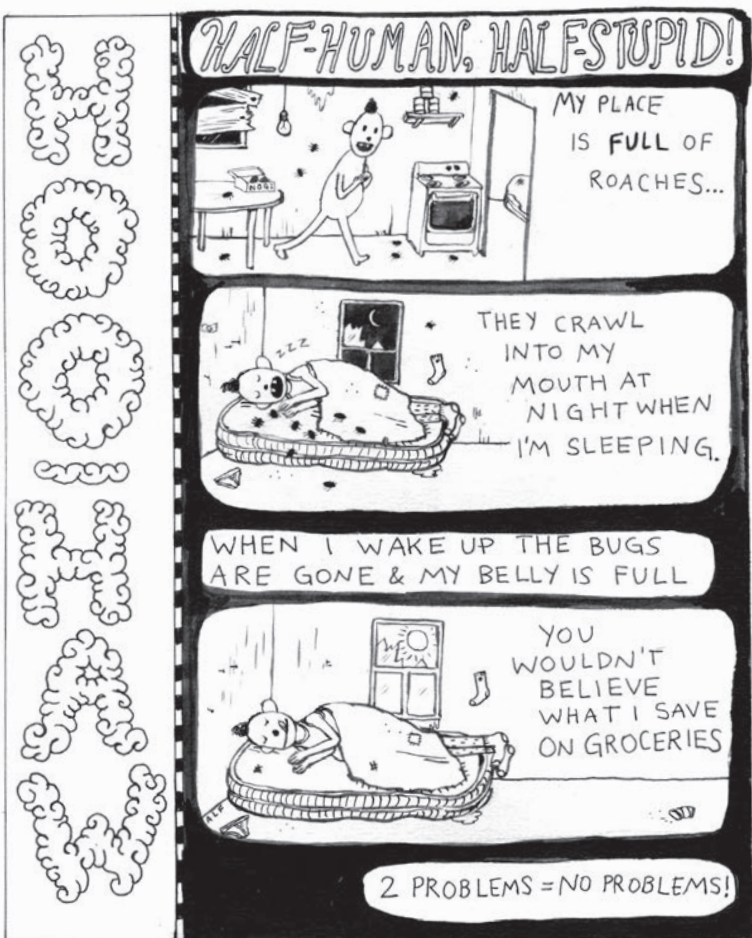 HOO-HAW
HALF-HUMAN, HALF-STUPID!
MY PLACE
IS FULL OF
ROACHES...
THEY CRAWL
INTO MY
MOUTH AT
NIGHT WHEN
I'M SLEEPING.
ZZZ
WHEN I WAKE UP THE BUGS
ARE GONE & MY BELLY IS FULL
YOU
WOULDN'T
BELIEVE
WHAT I SAVE
ON GROCERIES
2 PROBLEMS = NO PROBLEMS!